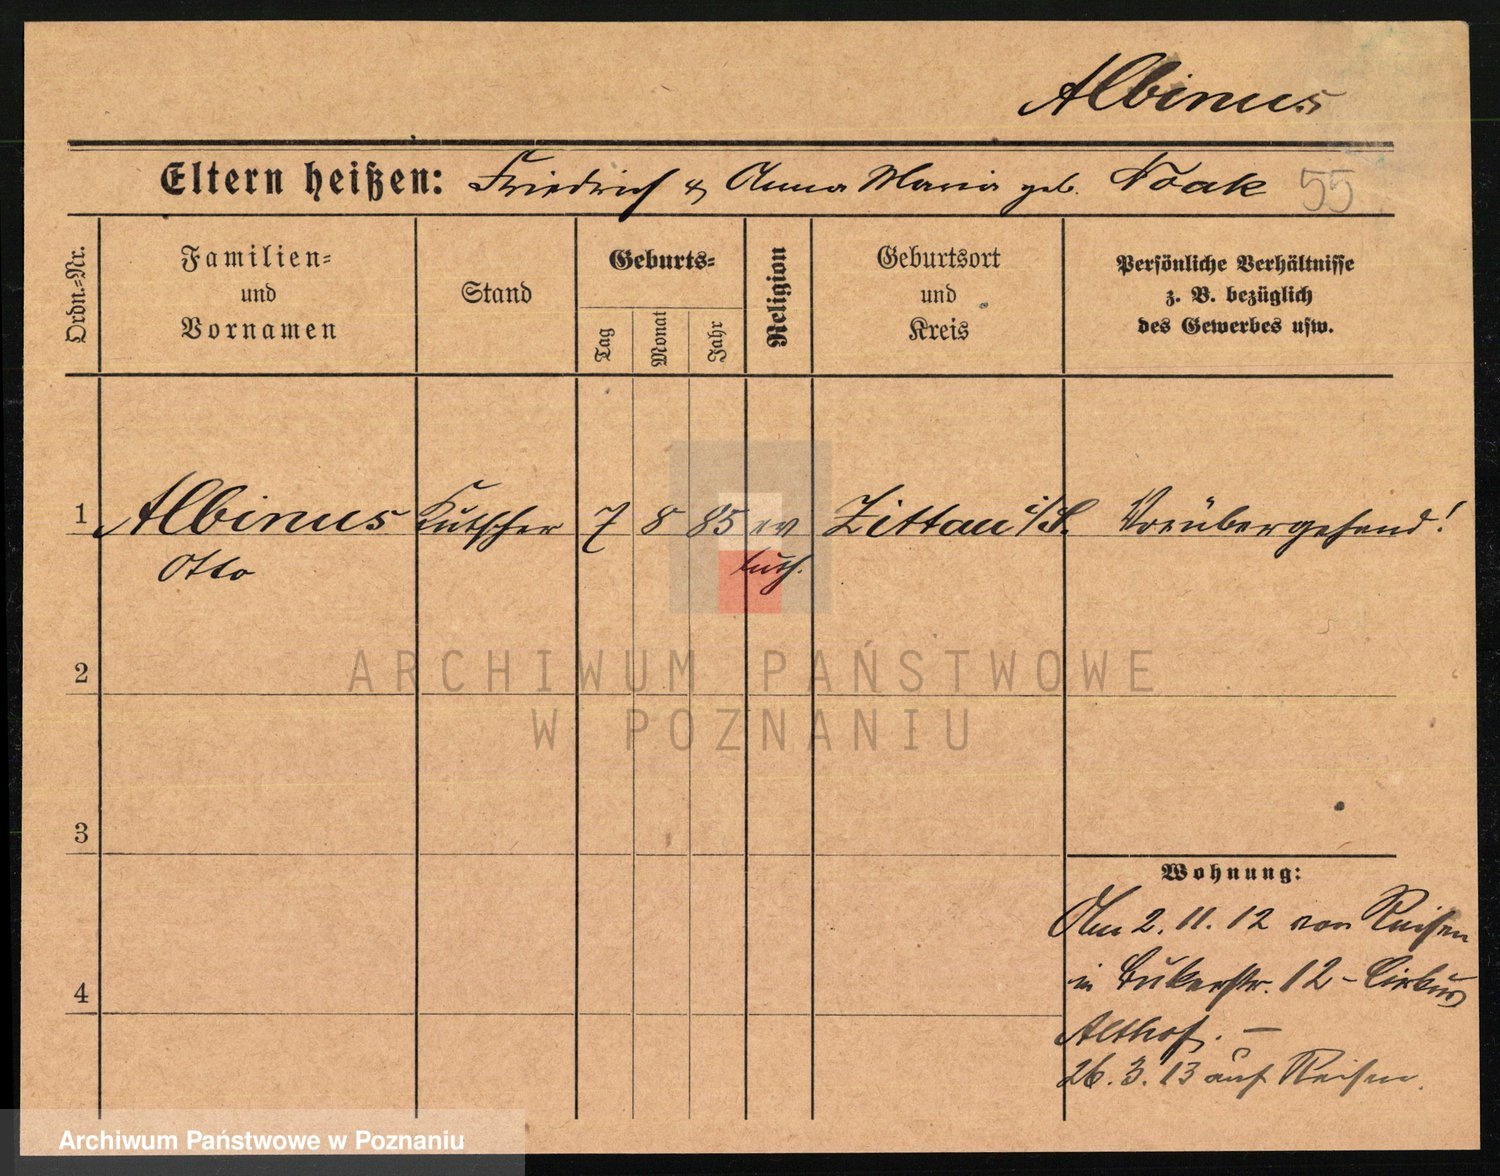 Albinus
Eltern heißen: Friedrich & Anna Maria geb. Noak 55
Ordn.-Nr.
Familien-
und
Vornamen
Stand
Geburts-
Tag
Monat
Jahr
Religion
Geburtsort
und
Kreis
Persönliche Verhältnisse
z. B. bezüglich
des Gewerbes usw.
1 Albinus Kutscher 7 8 85 ev Zittau i/S. Vorübergehend!
Otto luth.
ARCHIWUM PAŃSTWOWE
2
W POZNANIU
3
Wohnung:
Am 2. 11. 12 von Reisen
in Bukerstr. 12 - Cirkus
4
Althof. —
26. 3. 13 auf Reisen.
Archiwum Państwowe w Poznaniu